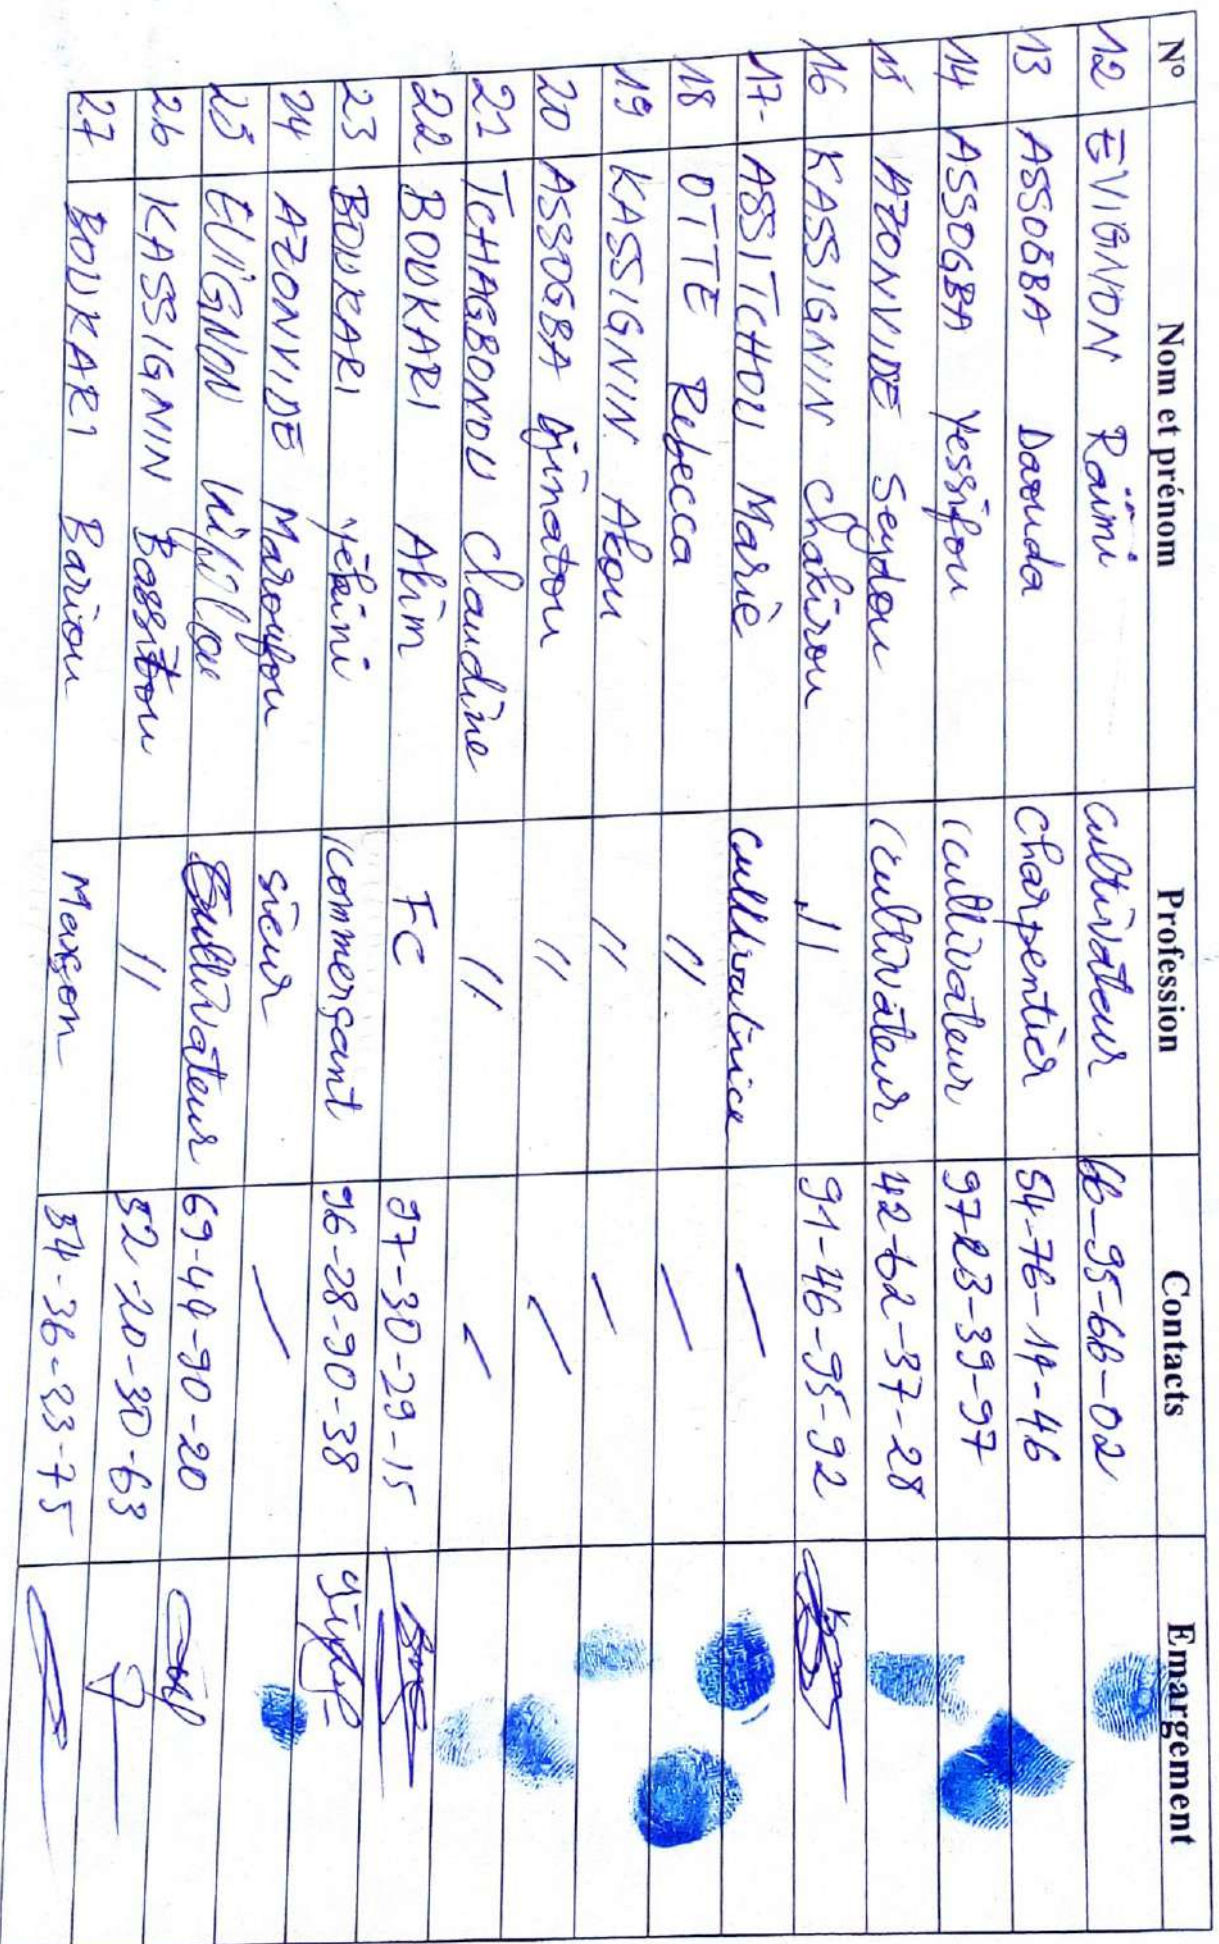 N° Nom et prénom Profession Contacts Emargement
12 EVIGNON Raïmi cultivateur 66-95-66-02
13 ASSOGBA Daouda Charpentier 54-76-14-46
14 ASSOGBA Yessifou cultivateur 97-23-39-97
15 AZONVIDE Seydou cultivateur 42-62-37-28
16 KASSIGNIN Chakirou // 91-46-95-92
17- ASSITCHOU Marie cultivatrice —
18 OTTE Rebecca // —
19 KASSIGNIN Akou // —
20 ASSOGBA Djinatou // —
21 TCHAGBONOU Claudine // —
22 BOUKARI Akim FC 97-30-29-15
23 BOUKARI Yékini commerçant 96-28-90-38
24 AZONVIDE Maroufou sieur —
25 EVIGNON cultivateur 69-44-90-20
26 KASSIGNIN Bassitou // 52-20-30-63
27 BOUKARI Bariou Maxson 54-36-33-75